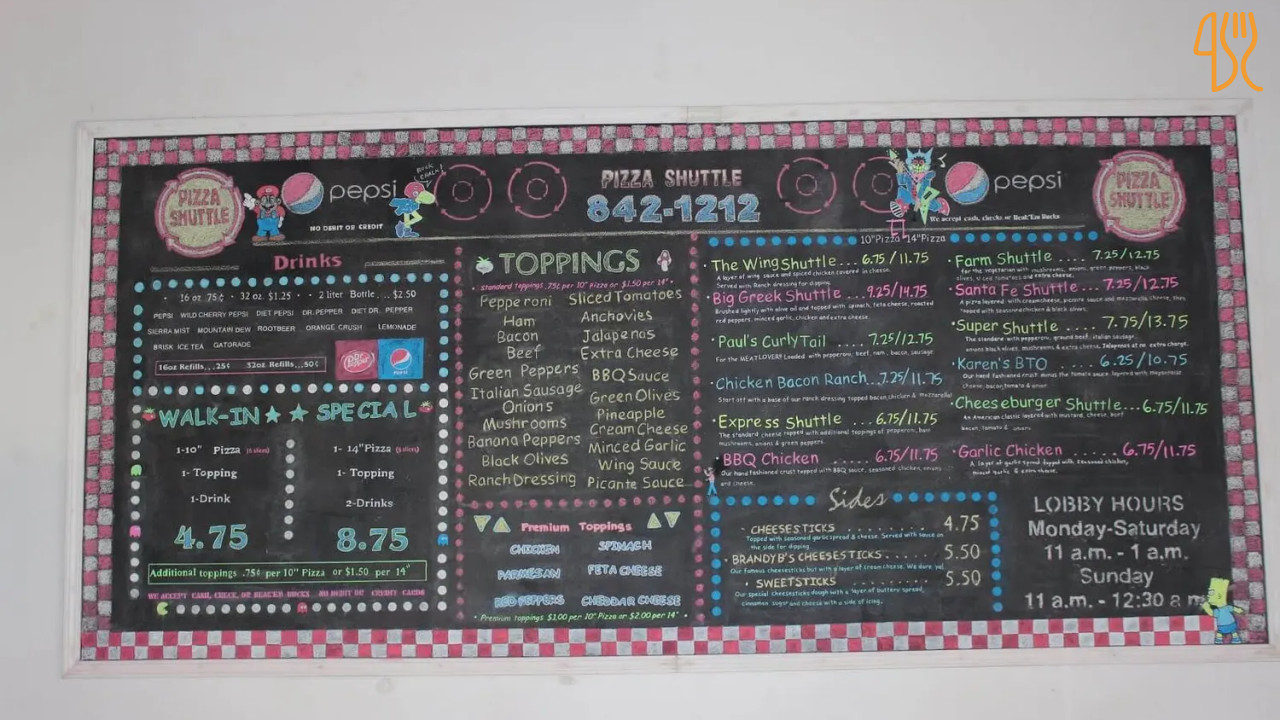 PIZZA SHUTTLE
pepsi
NO DEBIT OR CREDIT
PIZZA SHUTTLE
842-1212
pepsi
We accept cash, checks or Beak'Em Bucks
PIZZA SHUTTLE
Drinks
16 oz 75¢ · 32 oz. $1.25 · 2 liter Bottle... $2.50
PEPSI WILD CHERRY PEPSI DIET PEPSI DR. PEPPER DIET DR. PEPPER
SIERRA MIST MOUNTAIN DEW ROOTBEER ORANGE CRUSH LEMONADE
BRISK ICE TEA GATORADE
16oz Refills...25¢ 32oz Refills...50¢
Dr Pepper
PEPSI
WALK-IN SPECIAL
1-10" Pizza
1- Topping
1-Drink
4.75
1- 14"Pizza
1- Topping
2-Drinks
8.75
Additional toppings .75¢ per 10" Pizza or $1.50 per 14"
WE ACCEPT CASH, CHECK, OR BEAK'EM BUCKS NO DEBIT OR CREDIT CARDS
TOPPINGS
· standard toppings .75¢ per 10" Pizza or $1.50 per 14" ·
Pepperoni
Ham
Bacon
Beef
Green Peppers
Italian Sausage
Onions
Mushrooms
Banana Peppers
Black Olives
Ranch Dressing
Sliced Tomatoes
Anchovies
Jalapenos
Extra Cheese
BBQ Sauce
Green Olives
Pineapple
Cream Cheese
Minced Garlic
Wing Sauce
Picante Sauce
Premium Toppings
CHICKEN SPINACH
PARMESAN FETA CHEESE
RED PEPPERS CHEDDAR CHEESE
· Premium toppings $1.00 per 10" Pizza or $2.00 per 14" ·
10"Pizza 14"Pizza
· The Wing Shuttle... 6.75 / 11.75
A layer of wing sauce and spiced chicken covered in cheese.
Served with Ranch dressing for dipping.
· Big Greek Shuttle ... 9.25/14.75
Brushed lightly with olive oil and topped with spinach, feta cheese, roasted
red peppers, minced garlic, chicken and extra cheese.
· Paul's Curly Tail .... 7.25/12.75
For the MEAT LOVER! Loaded with pepperoni, beef, ham, bacon, sausage.
· Chicken Bacon Ranch...7.25/11.75
Start off with a base of our ranch dressing topped bacon, chicken & mozzarella
· Express Shuttle ... 6.75/11.75
The standard cheese topped with additional toppings of pepperoni, ham
mushrooms, onions & green peppers.
· BBQ Chicken ..... 6.75/11.75
Our hand fashioned crust topped with BBQ sauce, seasoned chicken, onions
and cheese.
· Farm Shuttle .... 7.25/12.75
for the vegetarian with mushrooms, onions, green peppers, black
olives, sliced tomatoes and extra cheese.
· Santa Fe Shuttle ... 7.25/12.75
A pizza layered with cream cheese, picante sauce and mozzarella cheese, then
topped with seasoned chicken & black olives.
· Super Shuttle .... 7.75/13.75
The standard with pepperoni, ground beef, italian sausage,
onions, black olives, mushrooms & extra cheese. Jalapenos at no extra charge.
· Karen's BTO ..... 6.25/10.75
Our hand fashioned crust minus the tomato sauce, layered with mayonnaise
cheese, bacon, tomato & onion
· Cheeseburger Shuttle...6.75/11.75
An American classic layered with mustard, cheese, beef
bacon, tomato & onions
· Garlic Chicken ..... 6.75/11.75
A layer of garlic spread topped with seasoned chicken,
minced garlic & extra cheese.
Sides
· CHEESESTICKS ......... 4.75
Topped with seasoned garlic spread & cheese. Served with sauce on
the side for dipping
· BRANDY B'S CHEESESTICKS..... 5.50
Our famous cheesesticks but with a layer of cream cheese. We dare ya!
· SWEETSTICKS ........ 5.50
Our special cheesesticks dough with a layer of buttery spread,
cinnamon, sugar and cheese with a side of icing.
LOBBY HOURS
Monday-Saturday
11 a.m. - 1 a.m.
Sunday
11 a.m. - 12:30 a m